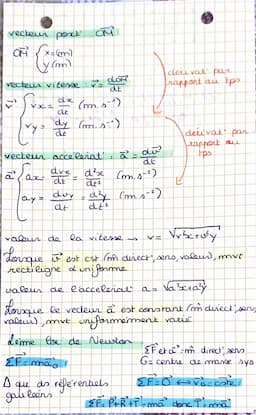 vecteur posit° OM
OM { x (m)
y (m)
vecteur vitesse : v = dOM/dt
dérivat° par rapport au tps
v { vx = dx/dt (m.s⁻¹)
vy = dy/dt (m.s⁻¹)
dérivat° par rapport au tps
vecteur accélérat° : a = dv/dt
a { ax = dvx/dt = d²x/dt² (m.s⁻²)
ay = dvy/dt = d²y/dt² (m.s⁻²)
valeur de la vitesse → v = √v²x+v²y
Lorsque v est cst (m̂ direct°, sens, valeur), mvt
rectiligne & uniforme
valeur de l'accélérat° a = √a²x+a²y
Lorsque le vecteur a est constant (m̂ direct°, sens,
valeur), mvt uniformément varié
2ème loi de Newton
ΣF = ma
ΣF et a = m̂ direct°, sens
G = centre de masse sys
Δ que des référentiels
galiléens
ΣF = 0 ⟷ v = cste
ΣF = P+R+T = ma donc